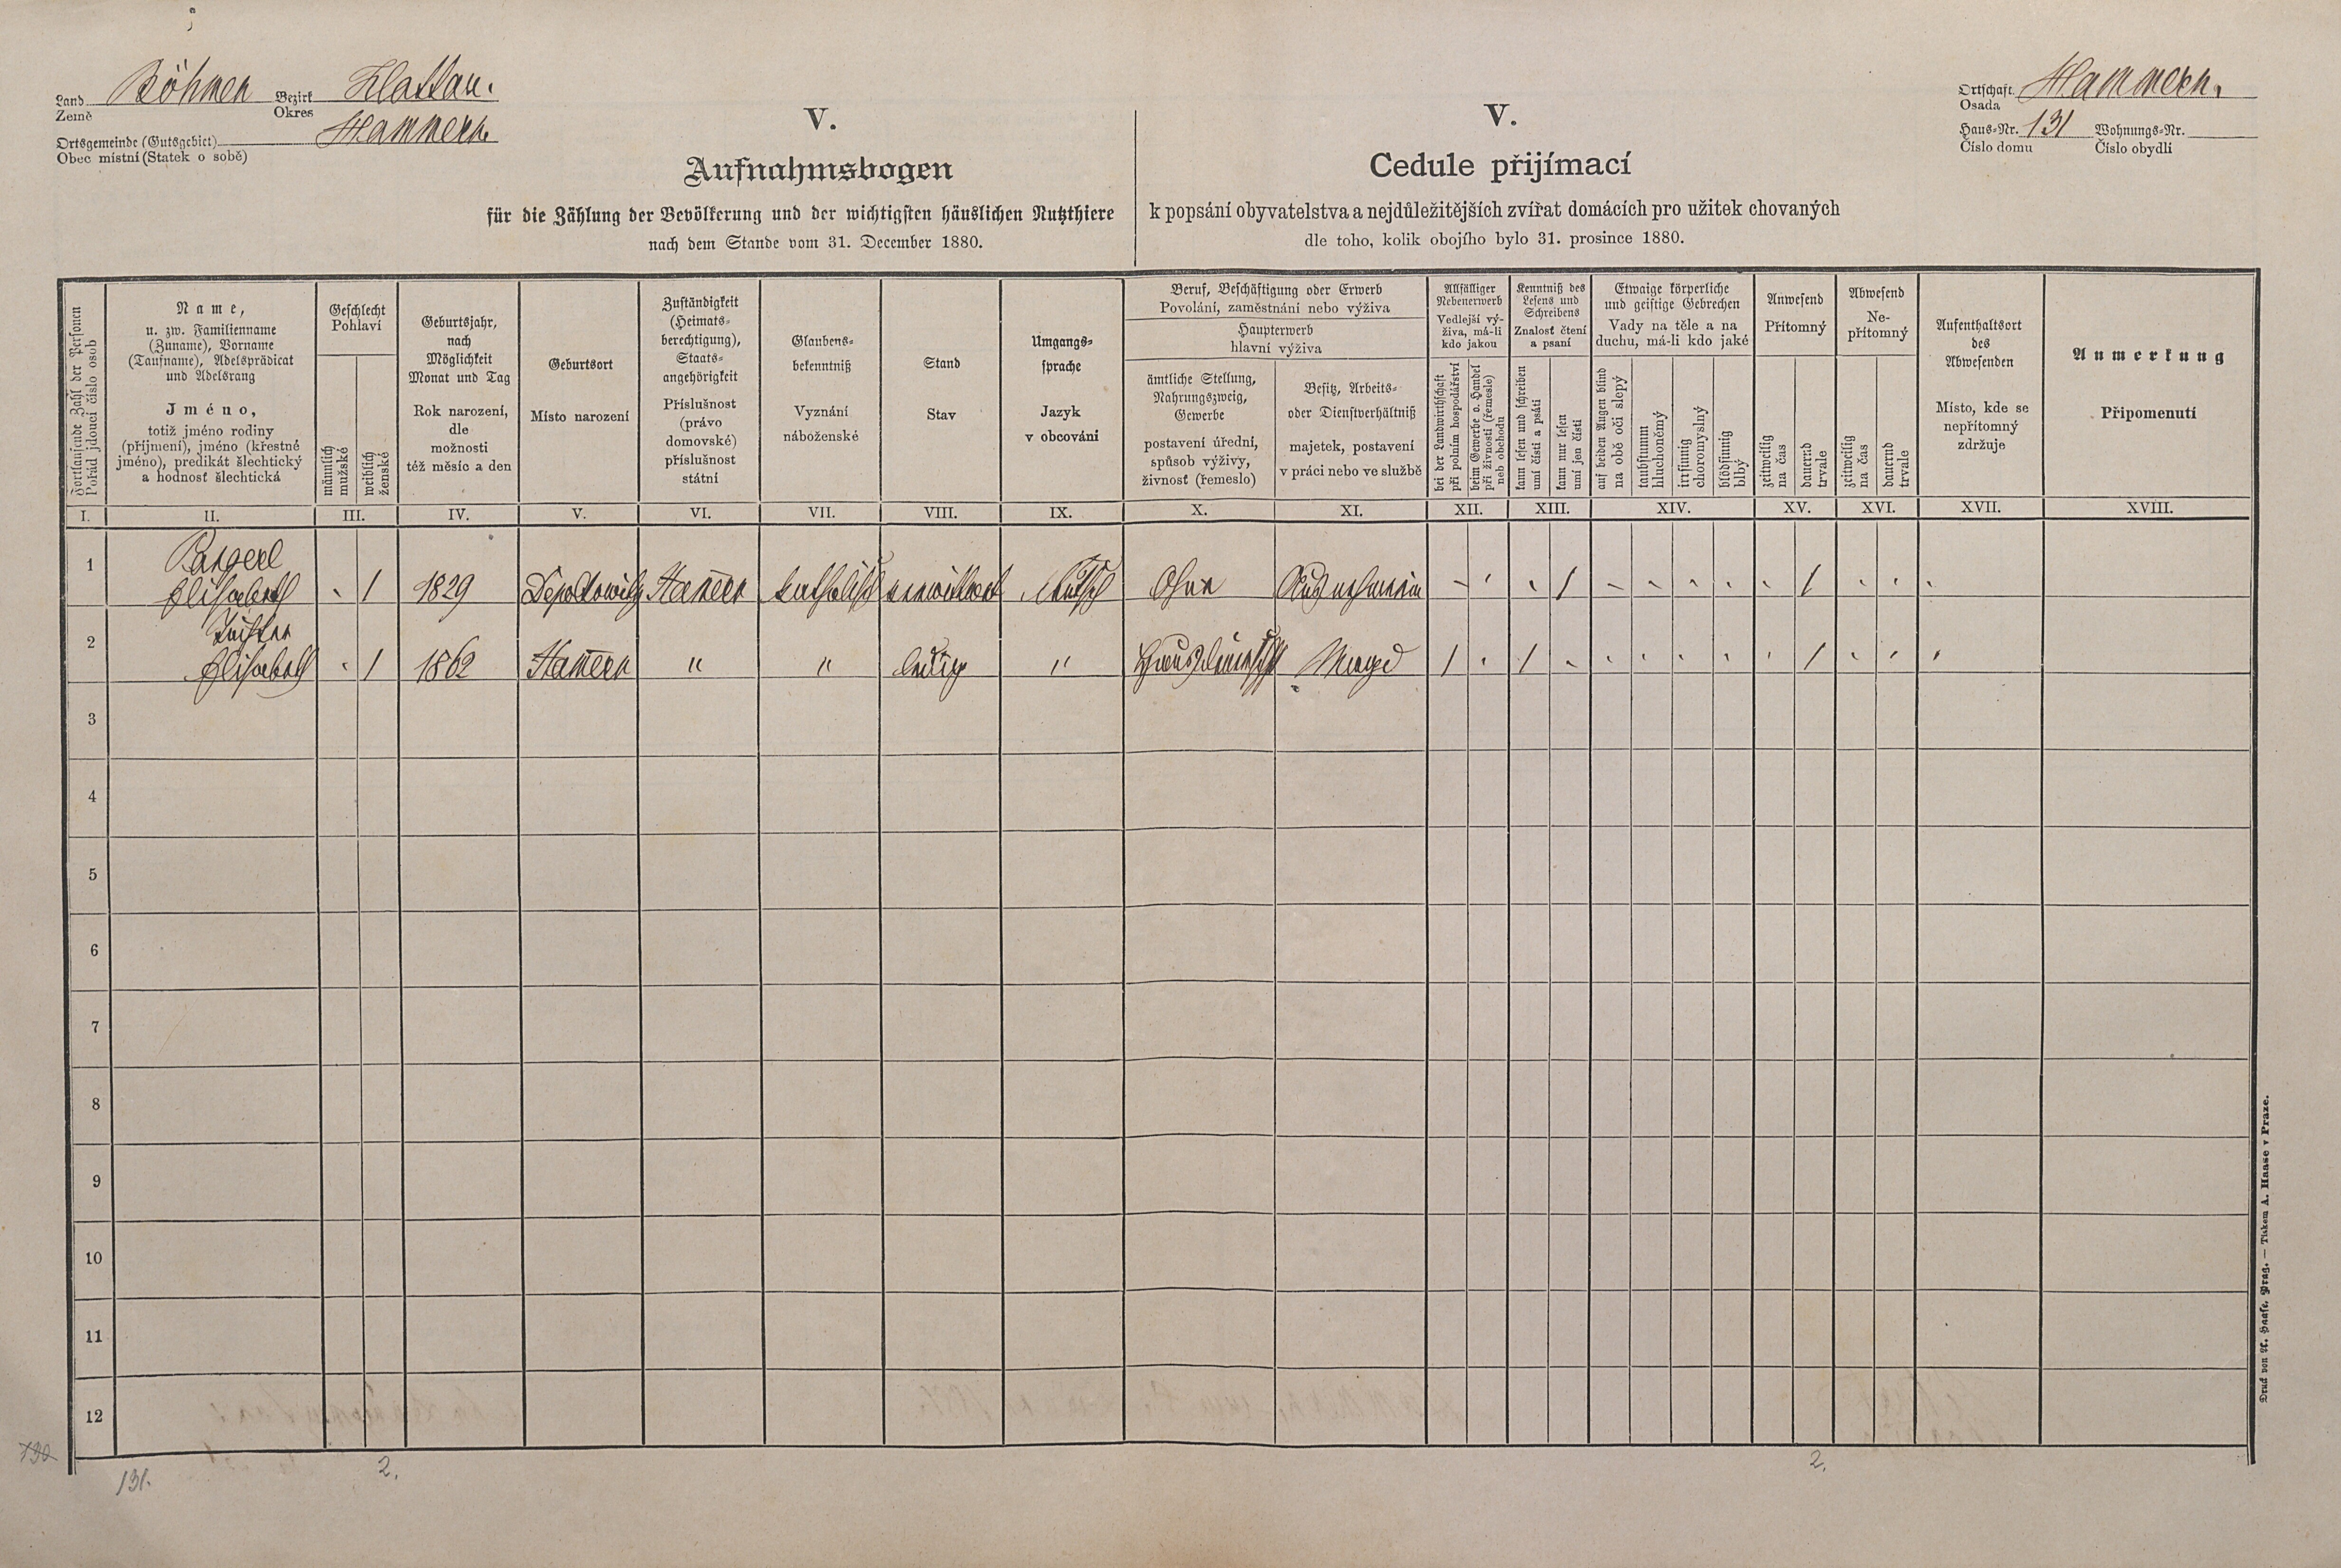 Land Böhmen Bezirk Klattau.
Země Okres
Ortsgemeinde (Gutsgebiet) Hammern.
Obec místní (Statek o sobě)
V.
Aufnahmsbogen
für die Zählung der Bevölkerung und der wichtigsten häuslichen Nutzthiere
nach dem Stande vom 31. December 1880.
V.
Cedule přijímací
k popsání obyvatelstva a nejdůležitějších zvířat domácích pro užitek chovaných
dle toho, kolik obojího bylo 31. prosince 1880.
Ortschaft Hammern.
Osada
Haus-Nr. 131 Wohnungs-Nr.
Číslo domu Číslo obydlí
Fortlaufende Zahl der Personen
Pořád jdoucí číslo osob
Name,
u. zw. Familienname
(Zuname), Vorname
(Taufname), Adelsprädicat
und Adelsrang
Jméno,
totiž jméno rodiny
(příjmení), jméno (křestné
jméno), predikát šlechtický
a hodnosť šlechtická
Geschlecht
Pohlaví
männlich
mužské
weiblich
ženské
Geburtsjahr,
nach
Möglichkeit
Monat und Tag
Rok narození,
dle
možnosti
též měsíc a den
Geburtsort
Místo narození
Zuständigkeit
(Heimats-
berechtigung),
Staats-
angehörigkeit
Příslušnost
(právo
domovské)
příslušnost
státní
Glaubens-
bekenntniß
Vyznání
náboženské
Stand
Stav
Umgangs-
sprache
Jazyk
v obcování
Beruf, Beschäftigung oder Erwerb
Povolání, zaměstnání nebo výživa
Haupterwerb
hlavní výživa
ämtliche Stellung,
Nahrungszweig,
Gewerbe
postavení úřední,
spůsob výživy,
živnosť (řemeslo)
Besitz, Arbeits-
oder Dienstverhältniß
majetek, postavení
v práci nebo ve službě
Allfälliger
Nebenerwerb
Vedlejší vý-
živa, má-li
kdo jakou
bei der Landwirthschaft
při polním hospodářství
beim Gewerbe o. Handel
při živnosti (řemesle)
neb obchodu
Kenntniß des
Lesens und
Schreibens
Znalosť čtení
a psaní
kann lesen und schreiben
umí čísti a psáti
kann nur lesen
umí jen čísti
Etwaige körperliche
und geistige Gebrechen
Vady na těle a na
duchu, má-li kdo jaké
auf beiden Augen blind
na obě oči slepý
taubstumm
hluchoněmý
irrsinnig
choromyslný
blödsinnig
blbý
Anwesend
Přítomný
zeitweilig
na čas
dauernd
trvale
Abwesend
Ne-
přítomný
zeitweilig
na čas
dauernd
trvale
Aufenthaltsort
des
Abwesenden
Místo, kde se
nepřítomný
zdržuje
Anmerkung
Připomenutí
I. II. III. IV. V. VI. VII. VIII. IX. X. XI. XII. XIII. XIV. XV. XVI. XVII. XVIII.
1 Elisabeth 1 1829 Hamern katholisch verwittwet deutsch Ohne Ausnehmerin 1 1
2 Elisabeth 1 1862 Hamern " " ledig " Magd 1 1 1
3
4
5
6
7
8
9
10
11
12
130
131.
2.
2.
Druck von A. Haase, Prag. — Tiskem A. Haase v Praze.